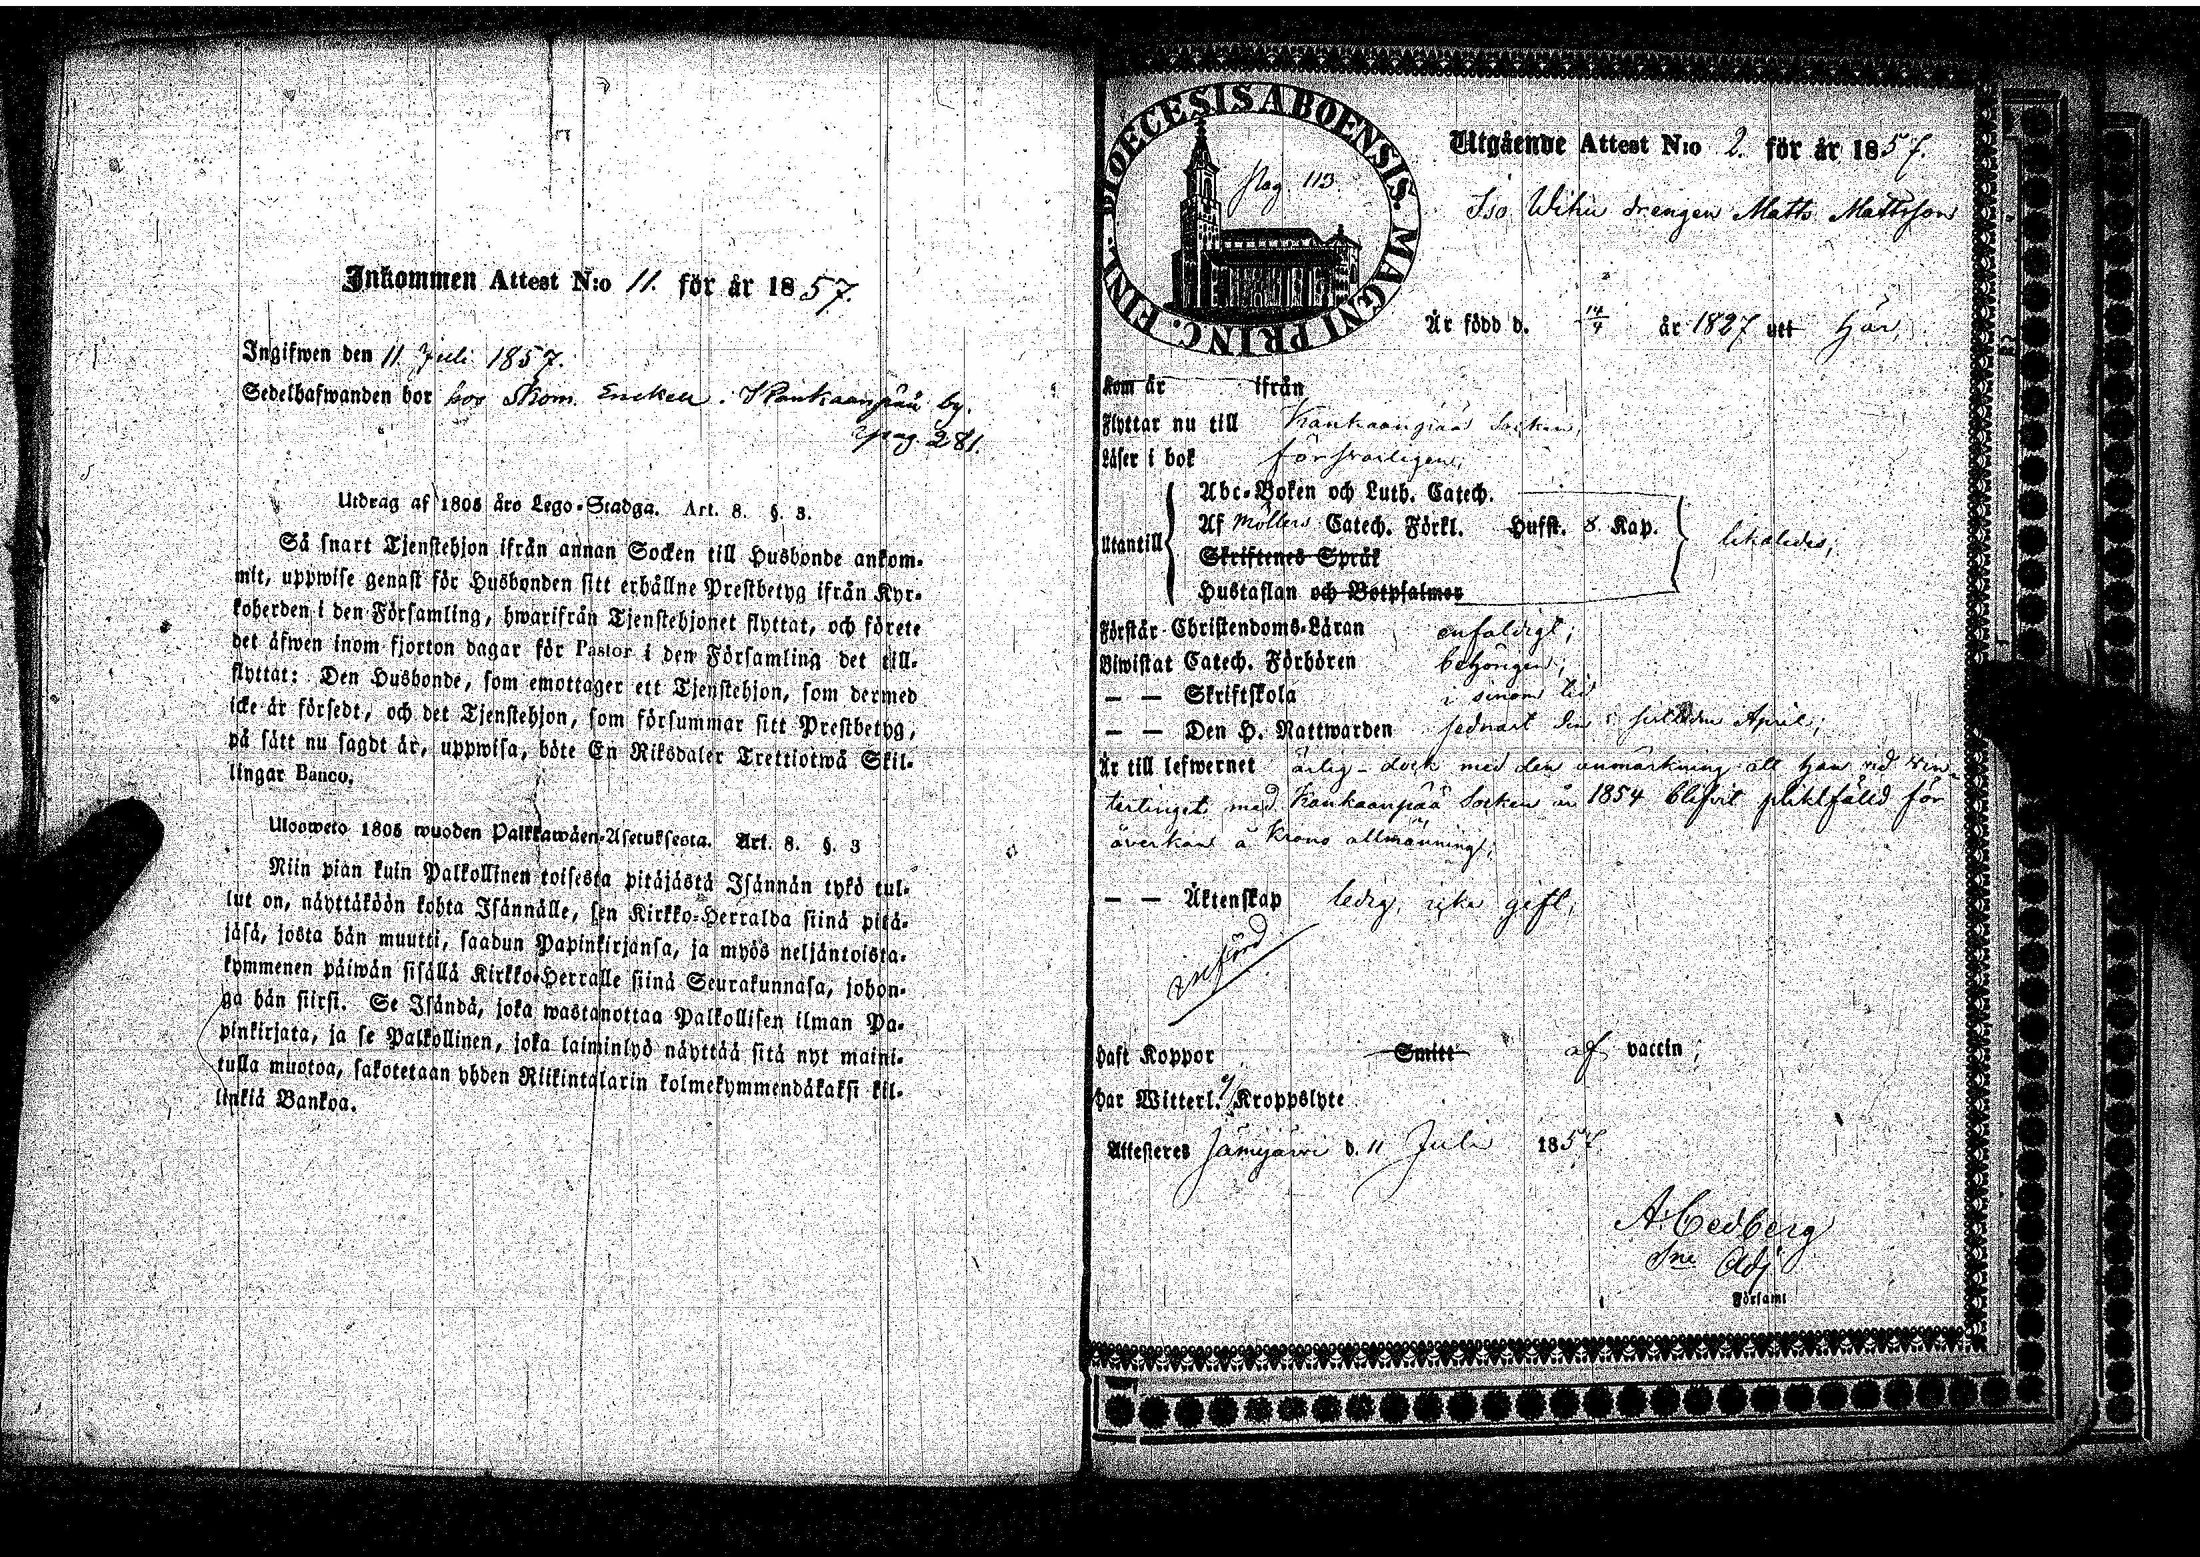 Inkommen Attest N:o 11. för år 1857.
Ingifwen den 11 Juli 1857.
Sedelhafwanden bor hos Skom. Enckell. Kankaanpää by.
pag. 281.
Utdrag af 1805 års Lego-Stadga. Art. 8. §. 3.
Så snart Tjenstehjon ifrån annan Socken till Husbonde ankom-
mit, uppwise genast för Husbonden sitt erhållne Prestbetyg ifrån Kyr-
koherden i den Församling, hwarifrån Tjenstehjonet flyttat, och förete
det äfwen inom fjorton dagar för Pastor i den Församling det till-
flyttat: Den Husbonde, som emottager ett Tjenstehjon, som dermed
icke är försedt, och det Tjenstehjon, som försummar sitt Prestbetyg,
på sätt nu sagdt är, uppwisa, böte En Riksdaler Trettiotwå Skil-
lingar Banco.
Ulosweto 1805 wuoden Palkkawäen-Asetuksesta. Art. 8. §. 3
Niin pian kuin Palkollinen toisesta pitäjästä Isännän tykö tul-
lut on, näyttäköön kohta Isännälle, sen Kirkko-Herralda siinä pitä-
jäsä, josta hän muutti, saadun Papinkirjansa, ja myös neljäntoista-
kymmenen päiwän sisällä Kirkko-Herralle siinä Seurakunnasa, johon-
ga hän siirsi. Se Isändä, joka wastanottaa Palkollisen ilman Pa-
pinkirjata, ja se Palkollinen, joka laiminlyö näyttää sitä nyt maini-
tulla muotoa, sakotetaan yhden Riikintalarin kolmekymmendäkaksi kil-
linkiä Bankoa.
DIOECESIS ABOENSIS. MAGNI PRINC. FINL.
pag. 113.
Utgående Attest N:o 2. för år 1857.
Iso Wihu drengen Matts Mattsson
Är född d. 14/4 år 1827 utt här,
Kom år ifrån
Flyttar nu till Kankaanpää Socken;
Läser i bok försvarligen;
Utantill
Abc-Boken och Luth. Catech.
Af Möllers Catech. Förkl. Hufst. 8. Kap.
Skriftenes Språk
Hustaflan och Botpsalmer
likaledes;
Förstår Christendoms-Läran enfaldigt;
Biwistat Catech. Förhören behörigen;
— — Skriftskola i sinom tid
— — Den H. Nattwarden sednast den April;
Är till lefwernet ärlig – dock med den anmärkning att han vid vin-
tertinget med Kankaanpää Socken år 1854 blifvit pliktfäld för
åverkan å Krono allmänning;
— — Äktenskap ledig, icke gift;
införd
Haft Koppor Smitt af vaccin;
Har Witterl. Kroppslyte
Attesteres Jämijärvi d. 11 Juli 1857
A. Cedberg
Sne Adj
Församl